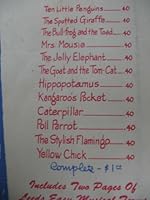 Ten Little Penguins .40
The Spotted Giraffe .40
The Bull-frog and the Toad .40
Mrs. Mousie .40
The Jolly Elephant .40
The Goat and the Tom-Cat .40
Hippopotamus .40
Kangaroo's Pocket .40
Caterpillar .40
Poll Parrot .40
The Stylish Flamingo .40
Yellow Chick .40
Complete - $1.00
Includes Two Pages Of
Leeds Easy Musical